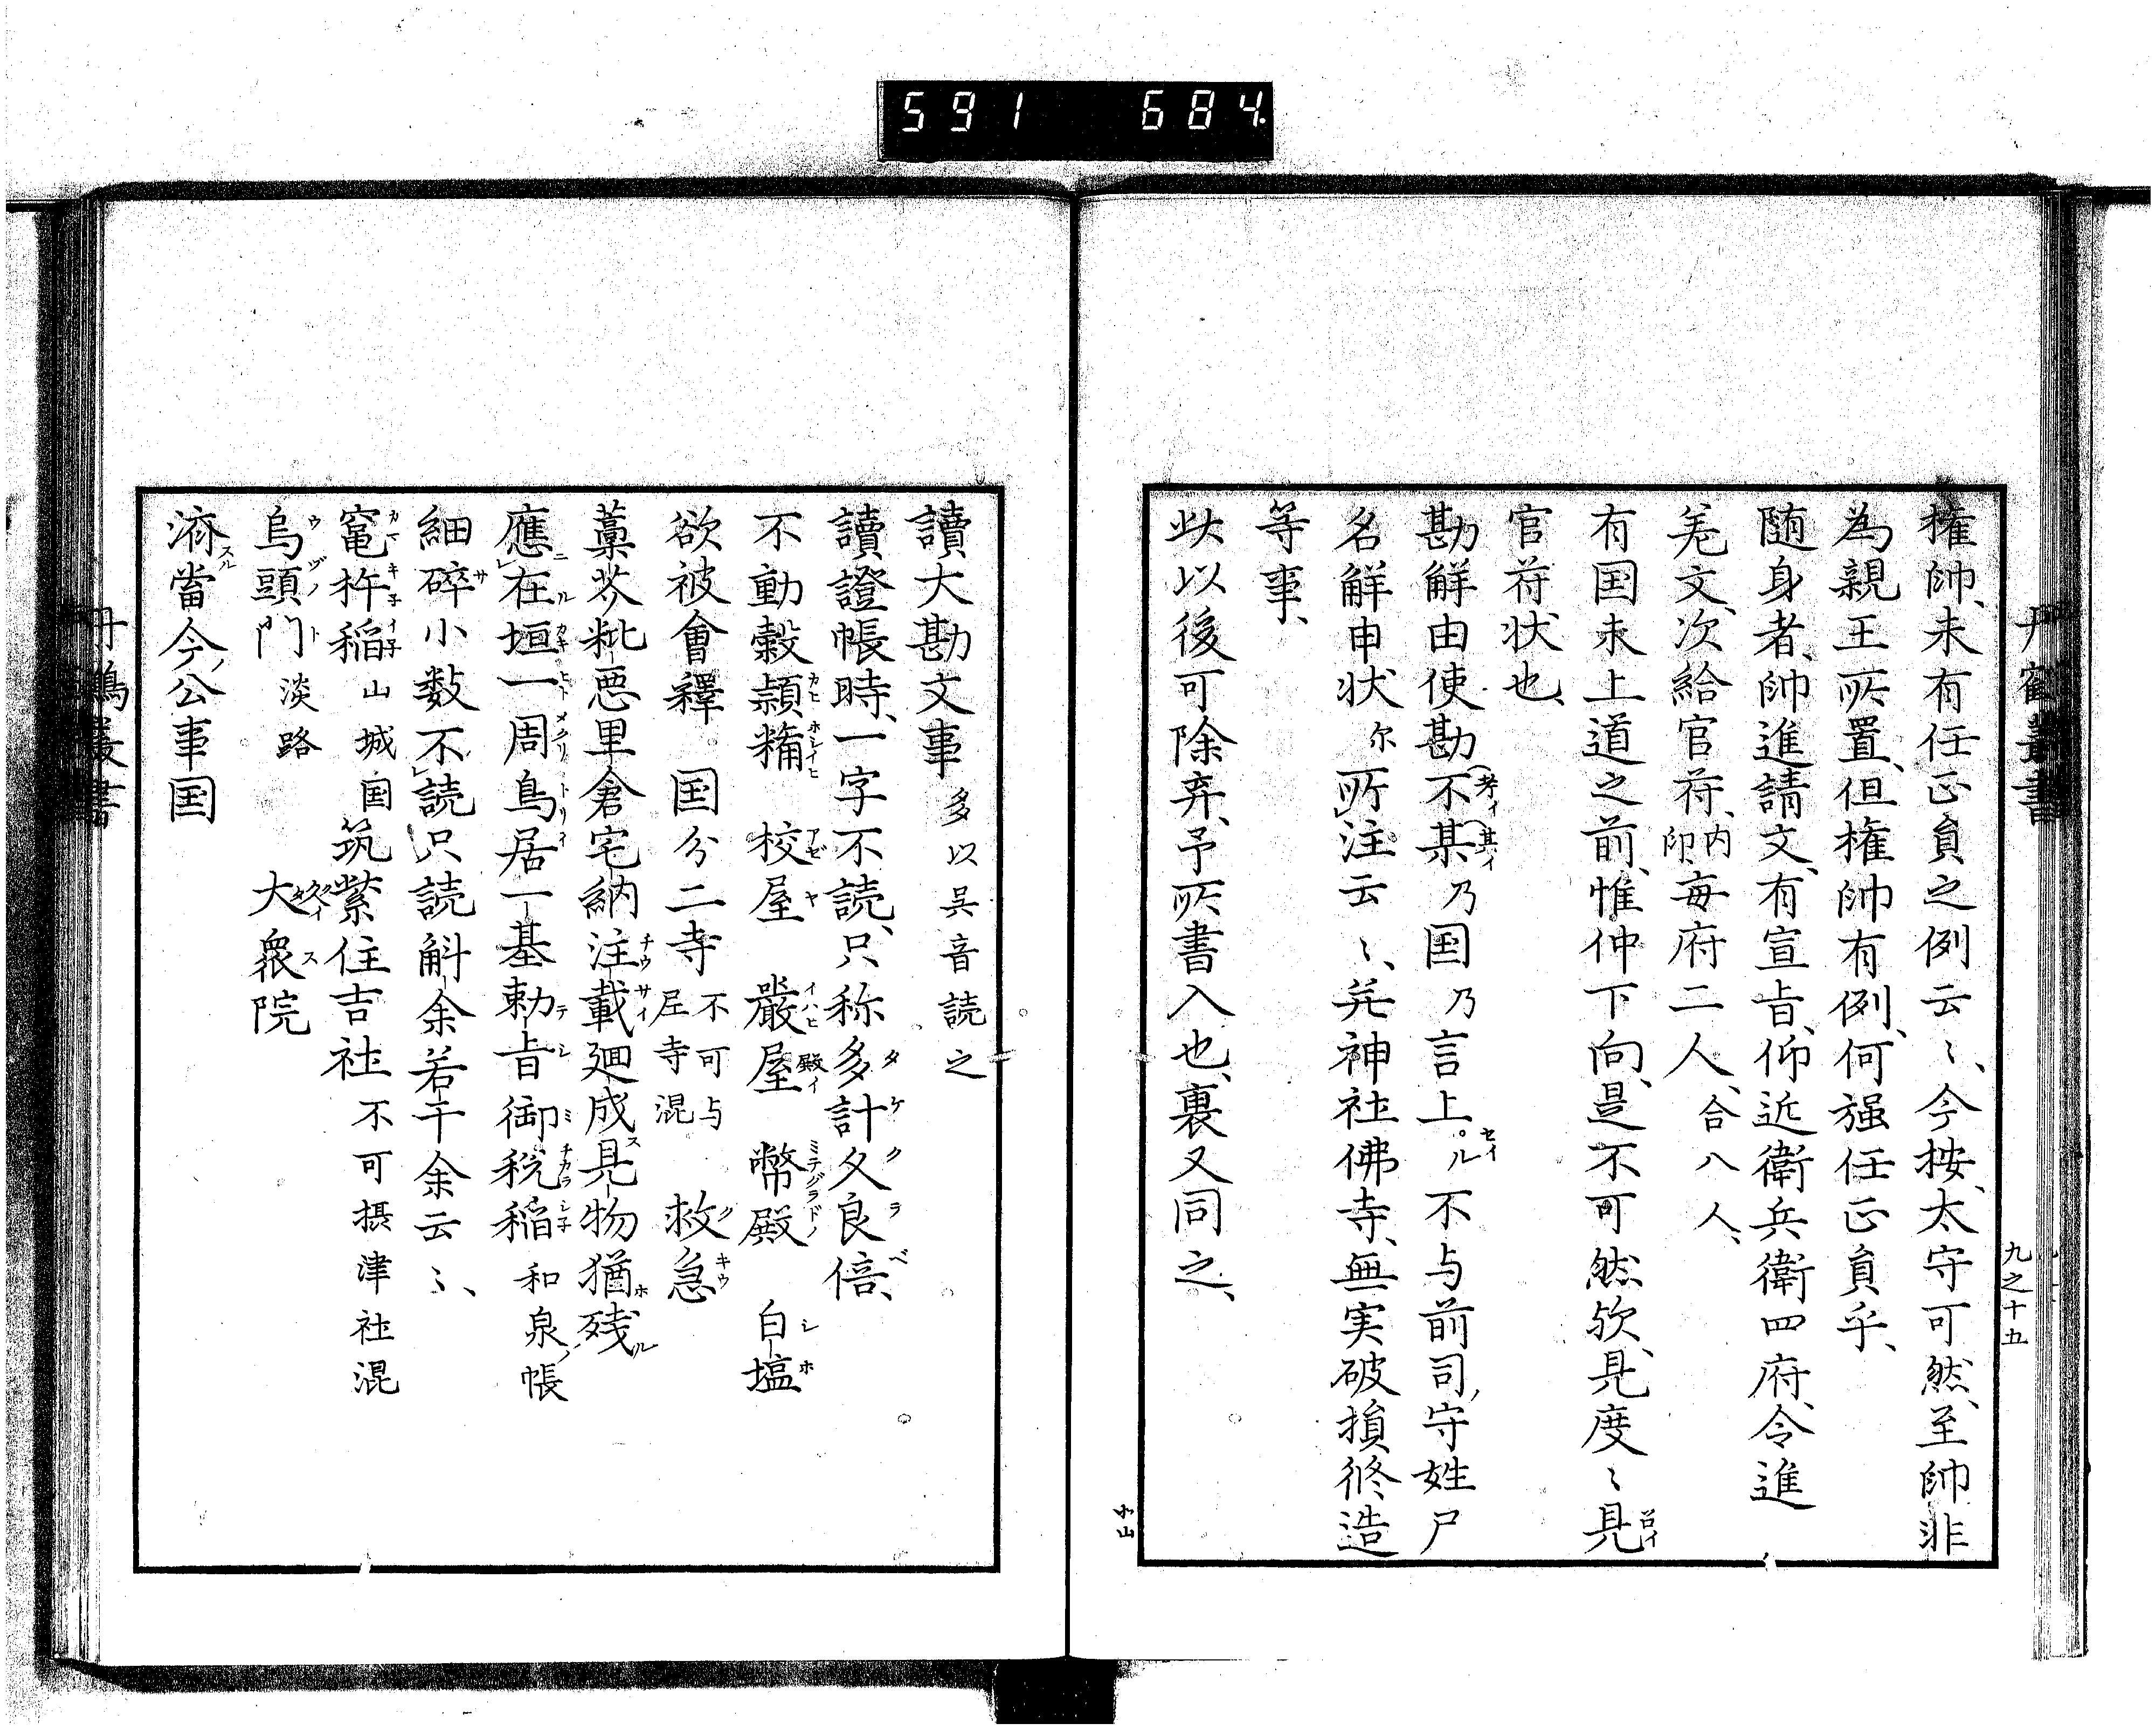 591 684.
丹鶴叢書
九之十五
権帥、未有任正員之例云〻、今按、太守可然、至帥非
為親王所置、但権帥有例、何强任正員乎、
随身者、帥進請文、有宣旨、仰近衛兵衛四府、令進
差文、次給官符、内印、毎府二人、合八人、
有国未上道之前、惟仲下向、是不可然欤、見度〻見
官符状也、
勘觧由使勘不某乃国乃言上ル不与前司、守姓尸
名觧申状尓所注云〻、并神社佛寺、無実破損修造
等事、
此以後可除弃、予所書入也、裏又同之、
讀大勘文事 多以呉音読之
讀證帳時、一字不読、只称多計久良倍、
不動穀頴糒 校屋 嚴屋 幣殿 白塩
欲被會釋 国分二寺 不可与 尼寺混 救急
藁芥粃悪里倉宅納注載廻成見物猶残
應在垣一周鳥居一基勅旨御税稲 和泉帳
細碎小数不読只読斛余若干余云〻、
竃杵稲 山城国 筑紫住吉社 不可摂津社混
烏頭門 淡路 大衆院
済當今公事国
丹鶴叢書